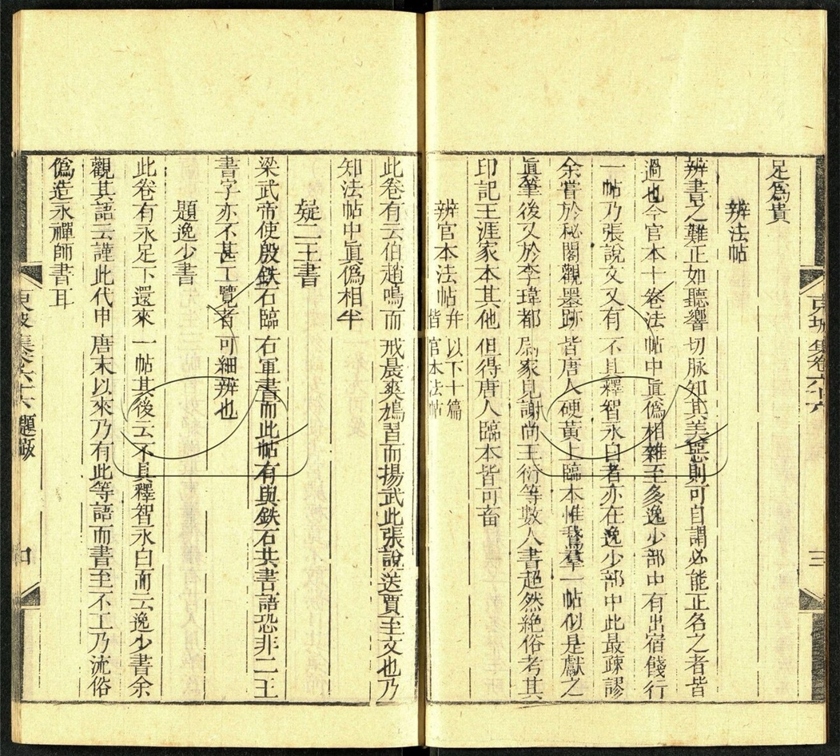 足爲貴
辨法帖
辨書之難正如聽響切脉知其美惡則可自謂必能正名之者皆
過也今官本十卷法帖中眞僞相雜至多逸少部中有出宿餞行
一帖乃張說文又有不具釋智永白者亦在逸少部中此最疎謬
余嘗於秘閣觀墨跡皆唐人硬黃上臨本惟鵞羣一帖似是獻之
眞筆後又於李瑋都尉家見謝尚王衍等數人書超然絶俗考其
印記王涯家本其他但得唐人臨本皆可畜
辨官本法帖 幷以下十篇皆官本法帖
此卷有云伯趙鳴而戒晨爽鳩習而揚武此張說送賈至文也乃
知法帖中眞僞相半
疑二王書
梁武帝使殷鉄石臨右軍書而此帖有與鉄石共書語恐非二王
書字亦不甚工覽者可細辨也
題逸少書
此卷有永足下還來一帖其後云不具釋智永白而云逸少書余
觀其語云謹此代申唐末以來乃有此等語而書至不工乃流俗
僞造永禪師書耳
東坡集卷六十六 題跋 四
東坡集卷六十六 三